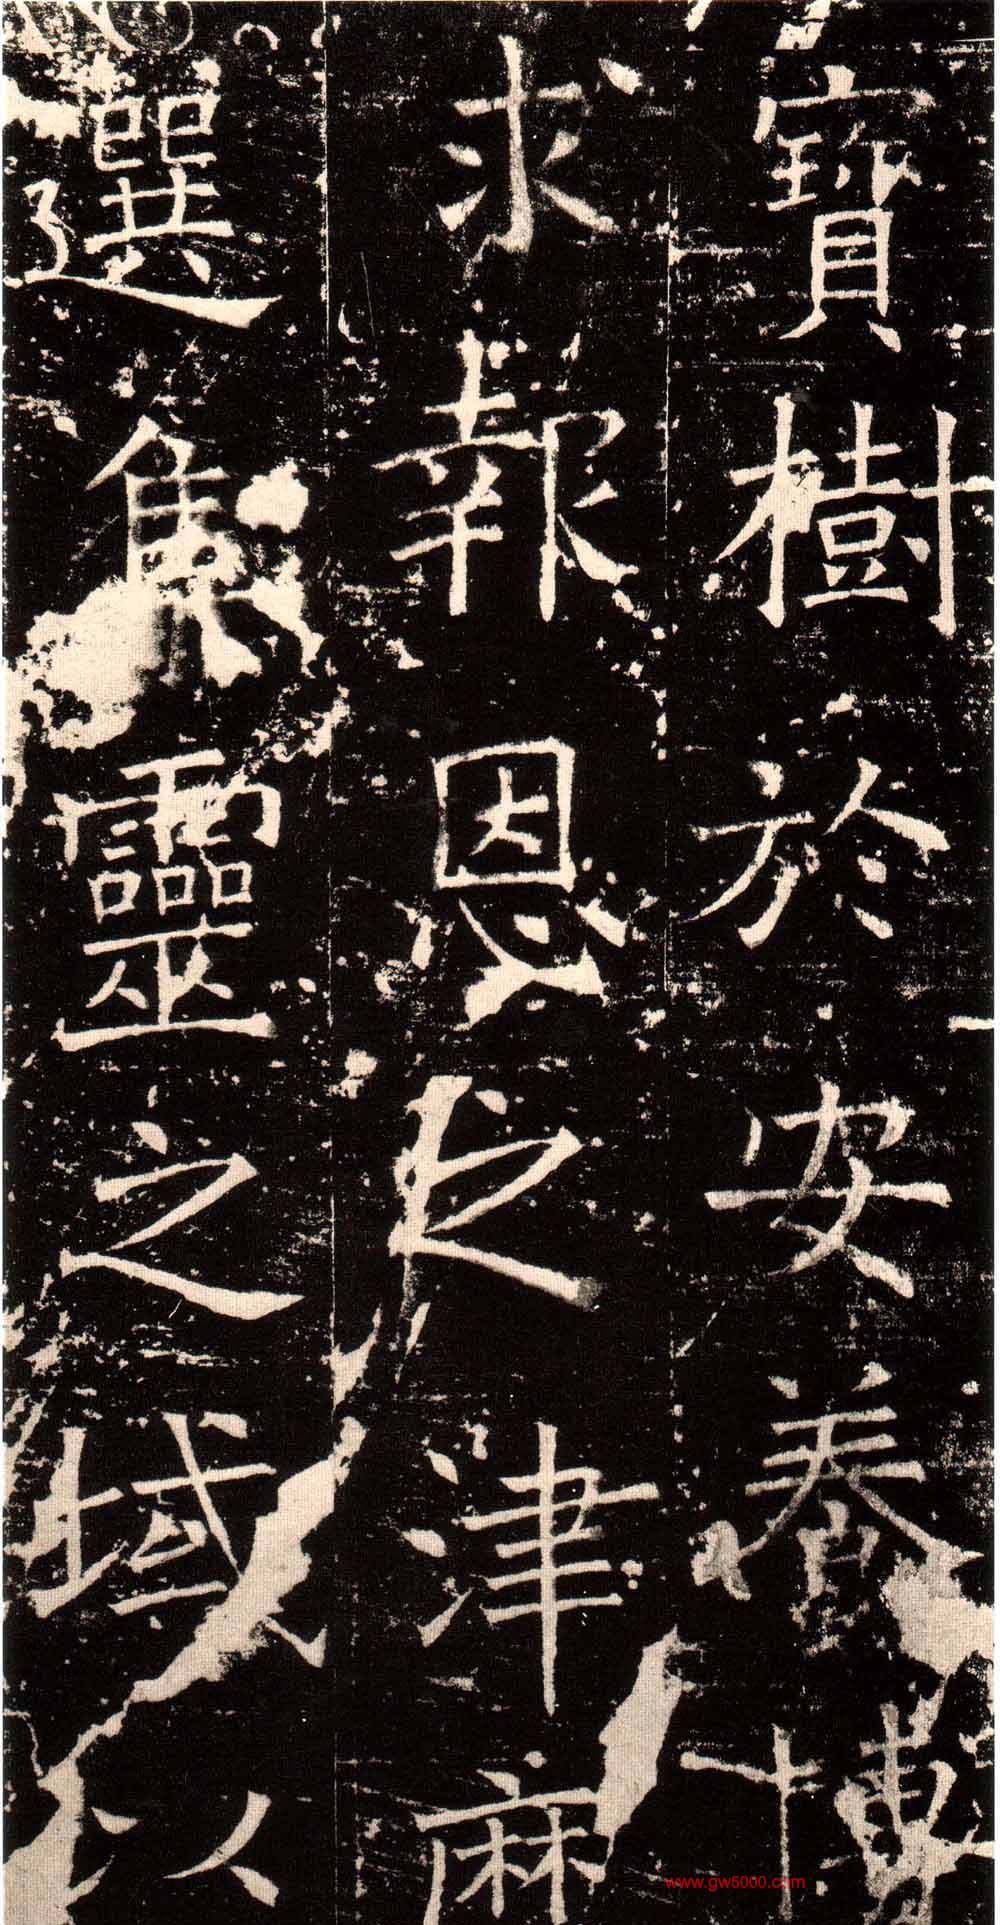 寶樹於安養博
求報恩之津歷
選集靈之域以
www.gw5000.com